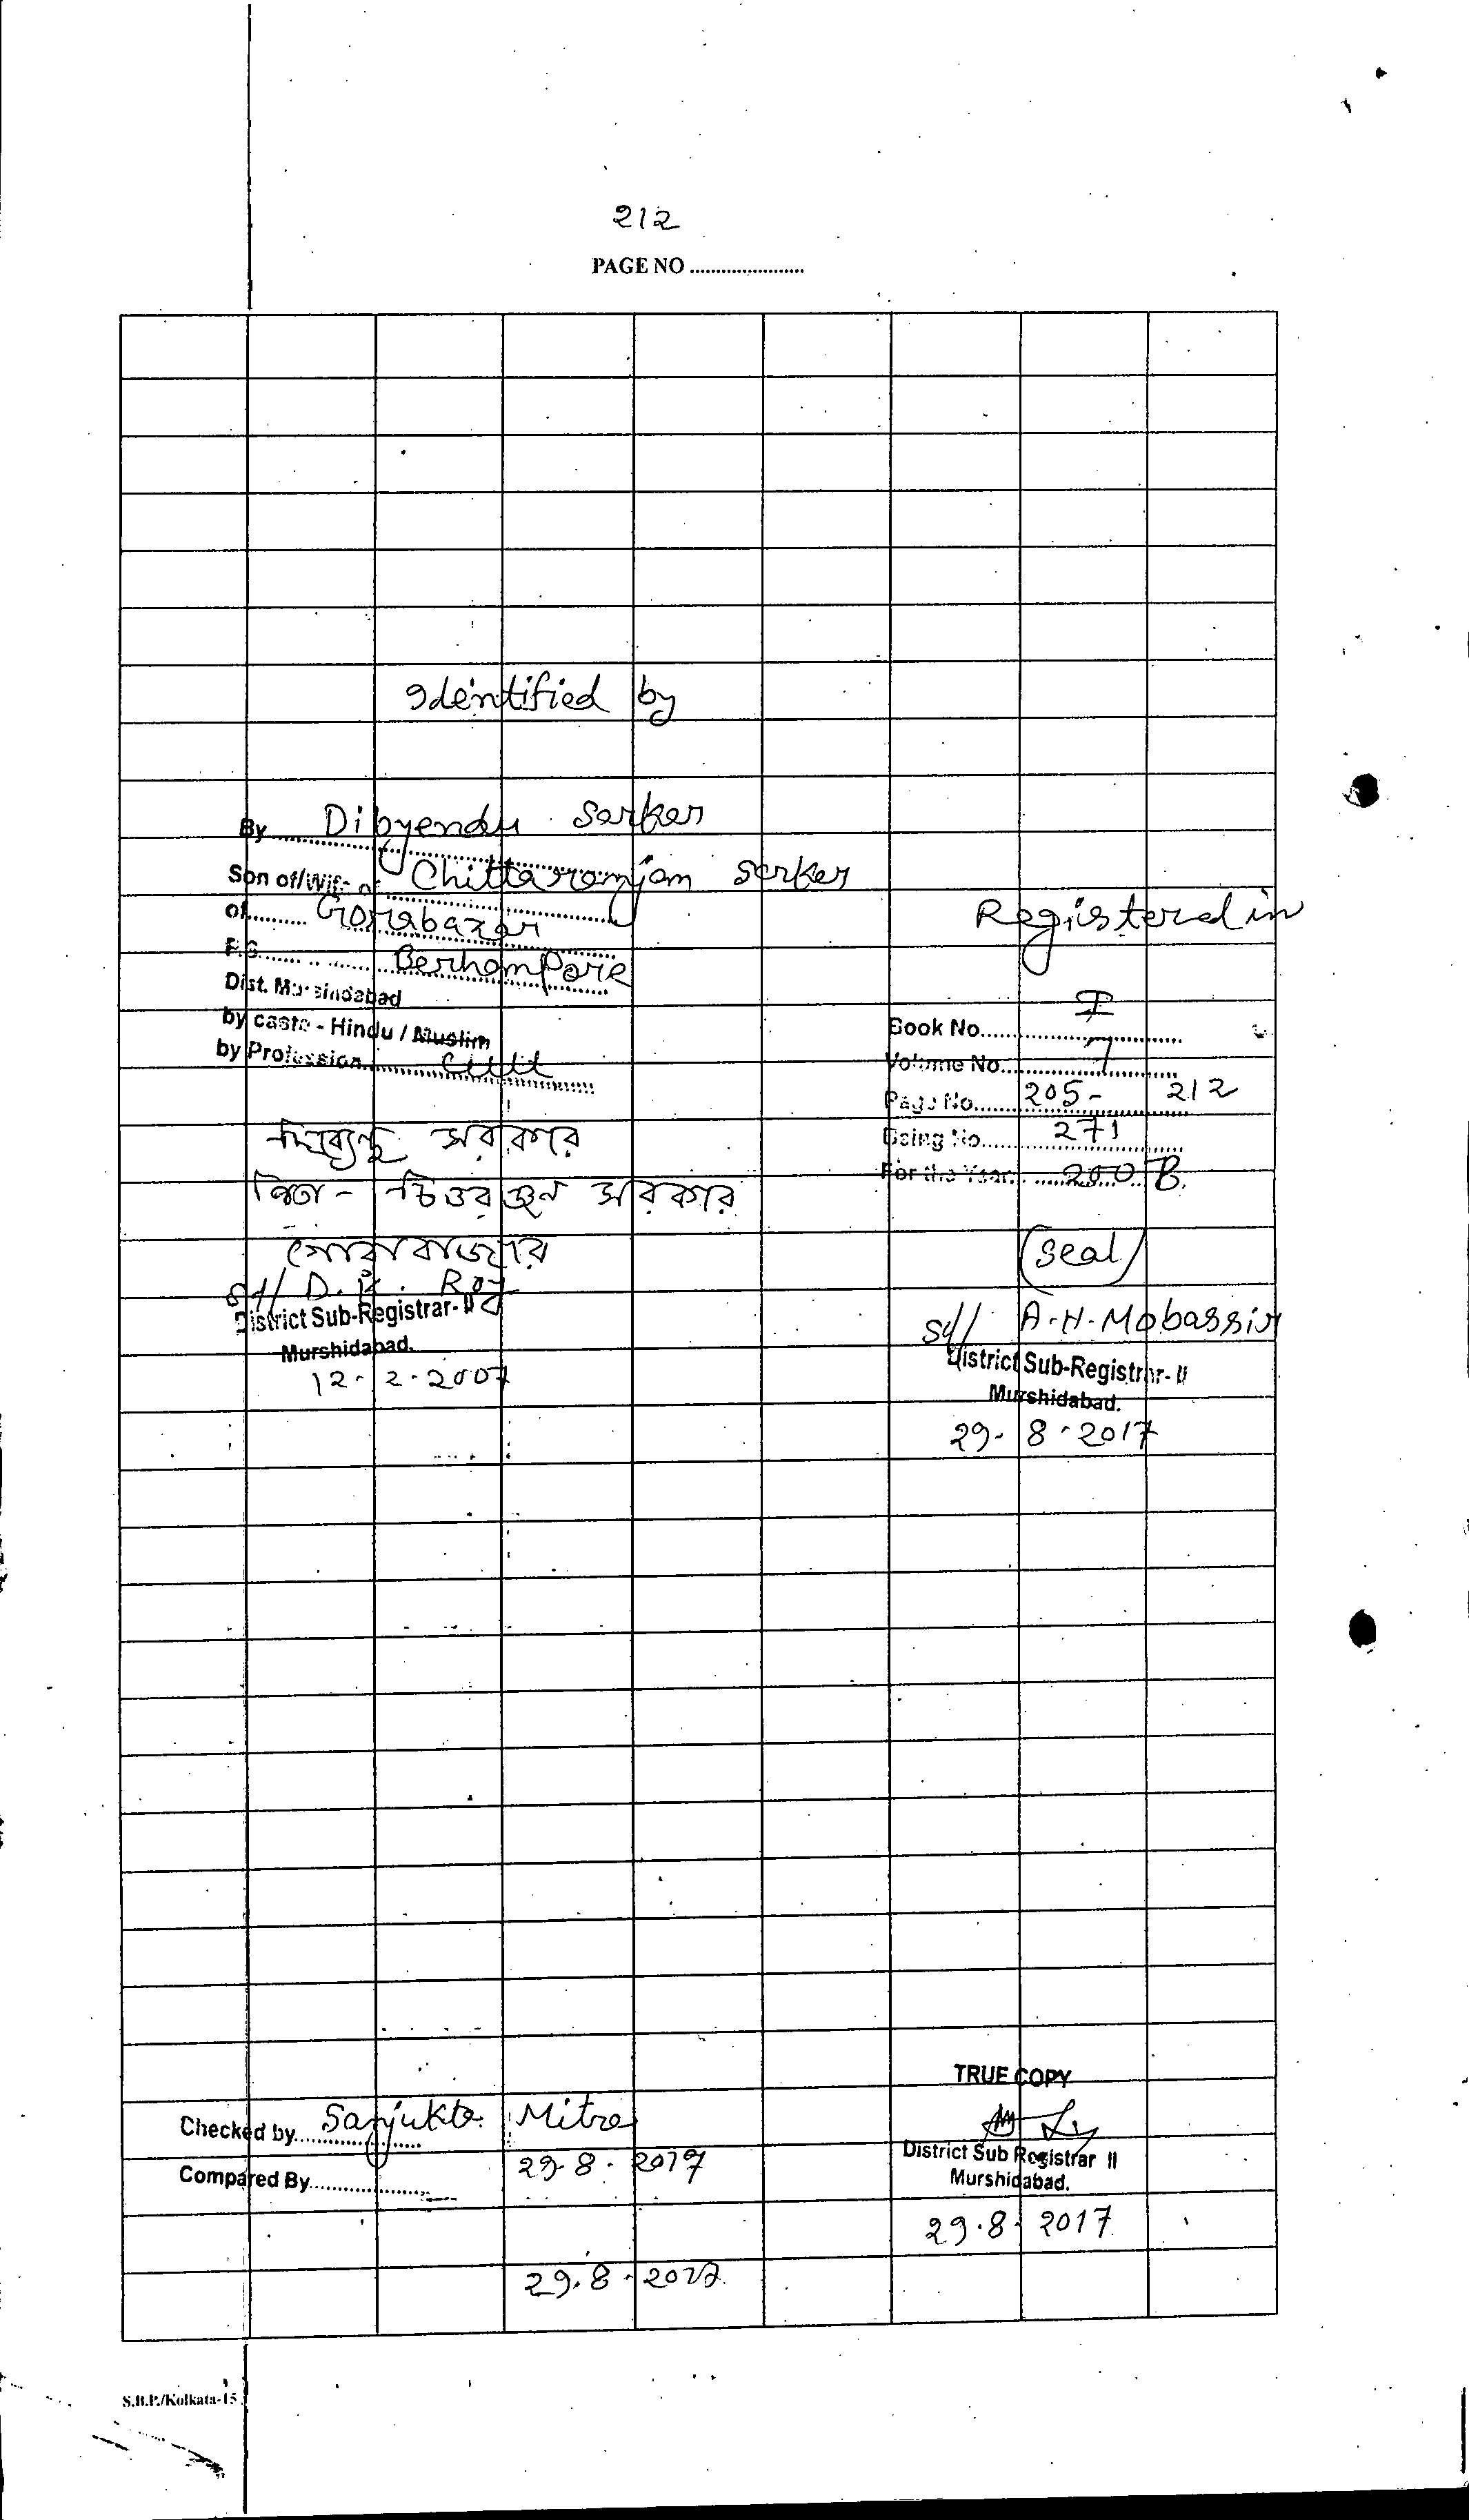 212
PAGE NO
Identified by
By Dibyendu Sarkar
Son of/Wife of Chittaranjan Sarkar
of Gorabazar
P.S. Berhampore
Dist. Mursindabad
by caste - Hindu / Muslim
by Profession
দিব্যেন্দু সরকার
পিতা - চিত্তরঞ্জন সরকার
গোরাবাজার
Sd/ D. K. Roy
District Sub-Registrar- II
Murshidabad.
12. 2. 2007
Registered in
Book No. I
Volume No. 7
Page No. 205 - 212
Being No. 271
For the Year 200
Seal
Sd/ A.H. Mobassir
District Sub-Registrar- II
Murshidabad.
29. 8. 2017
TRUE COPY
District Sub Registrar II
Murshidabad.
29.8. 2017
Checked by Sanjukta Mitra
29.8. 2017
Compared By
29.8. 2017
S.B.P./Kolkata-15